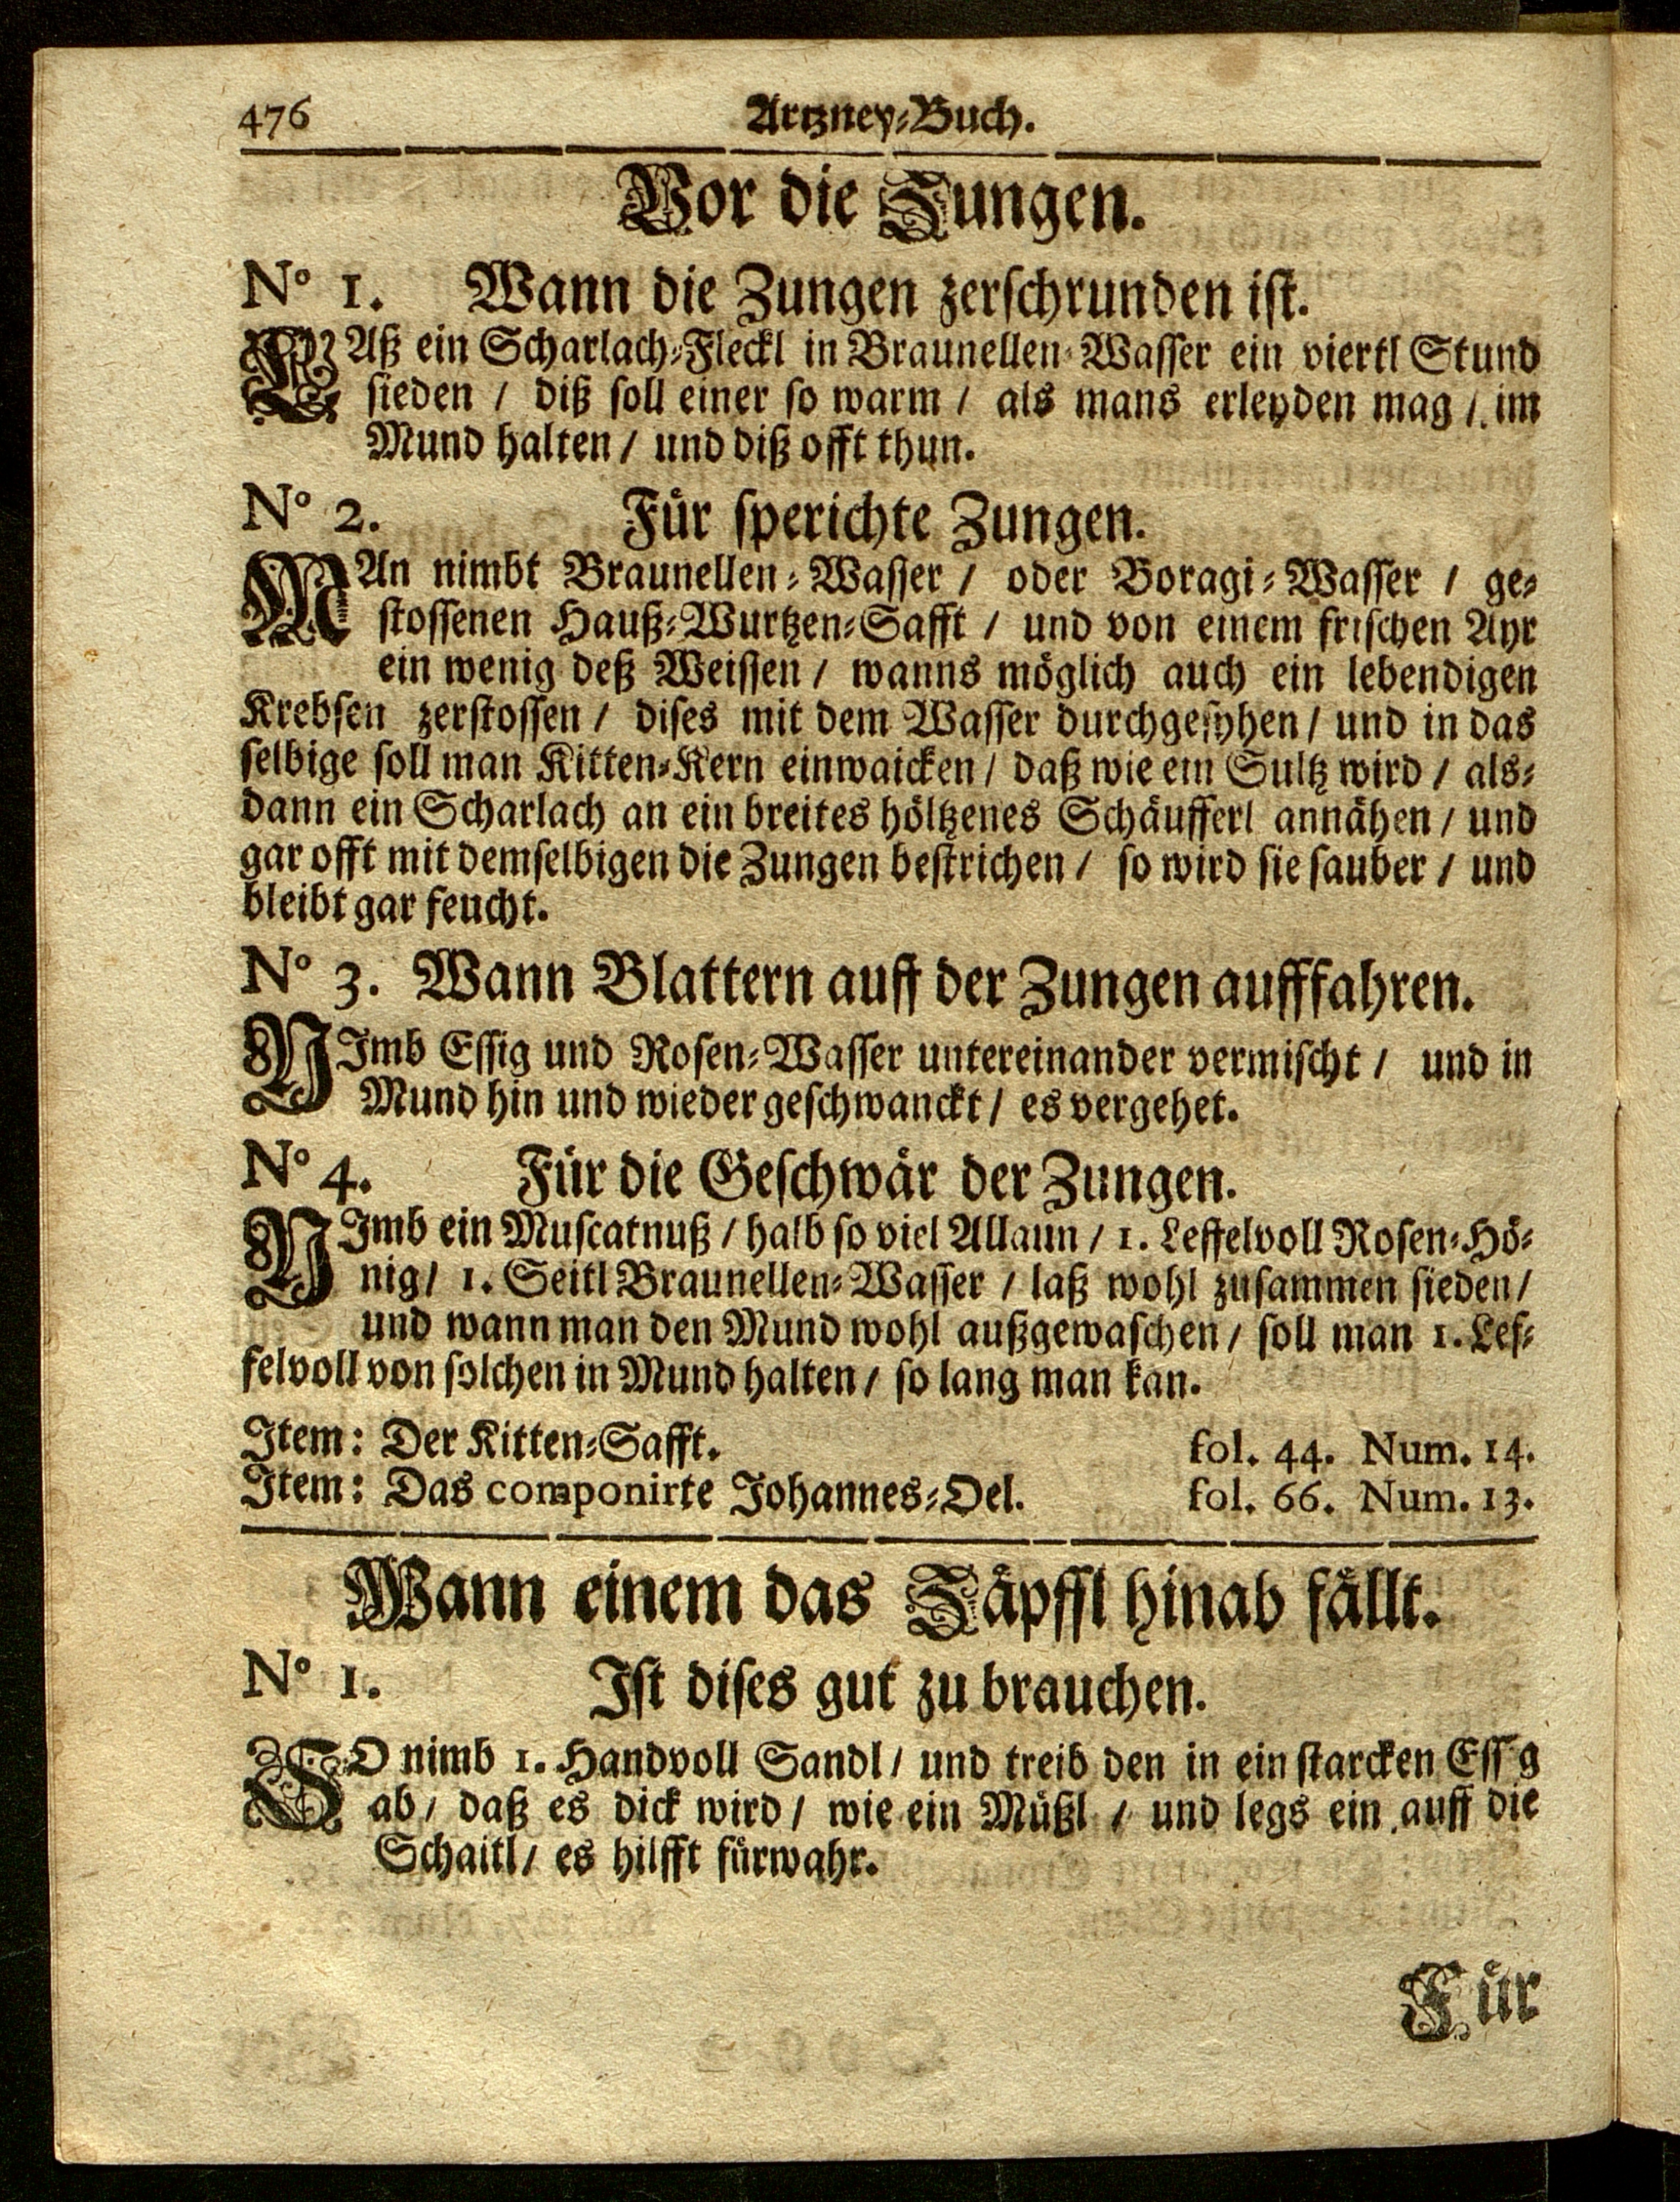 476 Artzney-Buch.
Vor die Zungen.
No 1. Wann die Zungen zerschrunden ist.
LAß ein Scharlach-Fleckl in Braunellen-Wasser ein viertl Stund
sieden / diß soll einer so warm / als mans erleyden mag / im
Mund halten / und diß offt thun.
No 2. Für sperichte Zungen.
MAn nimbt Braunellen-Wasser / oder Boragi-Wasser / ge-
stossenen Hauß-Wurtzen-Safft / und von einem frischen Ayr
ein wenig deß Weissen / wanns möglich auch ein lebendigen
Krebsen zerstossen / dises mit dem Wasser durchgesyhen / und in das
selbige soll man Kitten-Kern einwaicken / daß wie ein Sultz wird / als-
dann ein Scharlach an ein breites höltzenes Schäufferl annähen / und
gar offt mit demselbigen die Zungen bestrichen / so wird sie sauber / und
bleibt gar feucht.
No 3. Wann Blattern auff der Zungen aufffahren.
NImb Essig und Rosen-Wasser untereinander vermischt / und in
Mund hin und wieder geschwanckt / es vergehet.
No 4. Für die Geschwär der Zungen.
NImb ein Muscatnuß / halb so viel Allaun / 1. Leffelvoll Rosen-Hö-
nig / 1. Seitl Braunellen-Wasser / laß wohl zusammen sieden /
und wann man den Mund wohl außgewaschen / soll man 1. Lef-
felvoll von solchen in Mund halten / so lang man kan.
Item: Der Kitten-Safft. fol. 44. Num. 14.
Item: Das componirte Johannes-Oel. fol. 66. Num. 13.
Wann einem das Zäpffl hinab fällt.
No 1. Ist dises gut zu brauchen.
SO nimb 1. Handvoll Sandl / und treib den in ein starcken Ess g
ab / daß es dick wird / wie ein Müßl / und legs ein auff die
Schaitl / es hilfft fürwahr.
Für